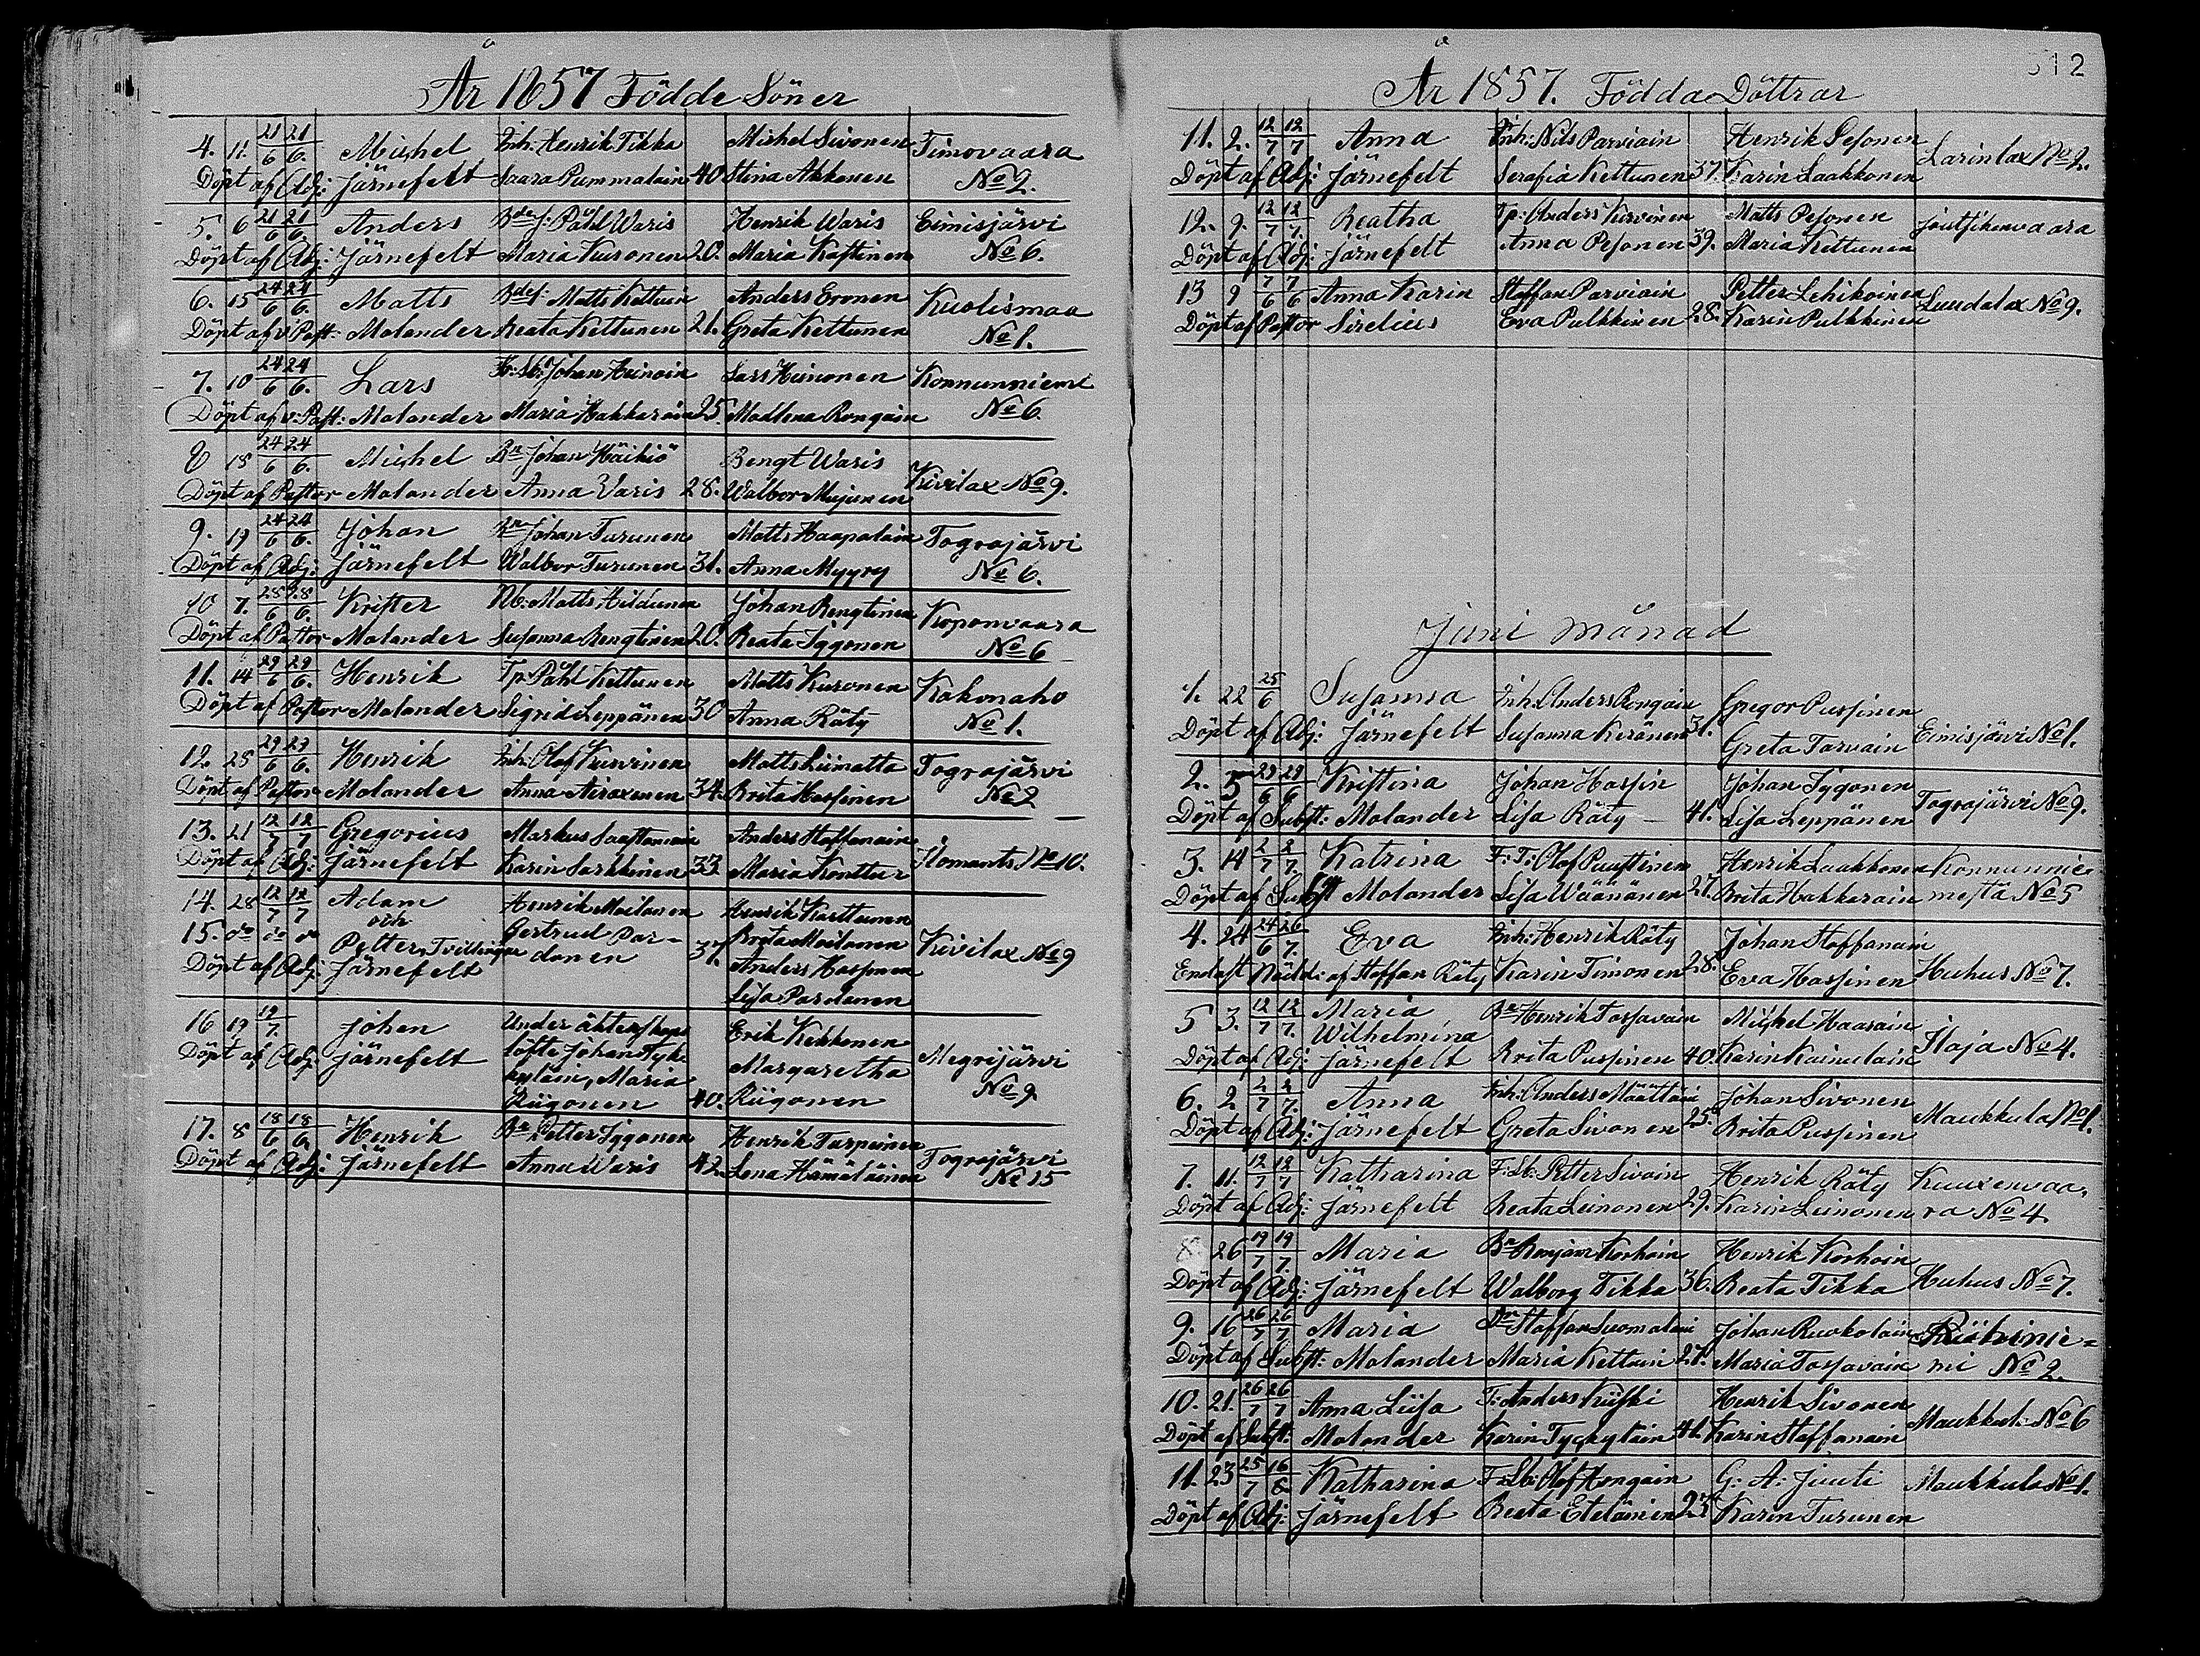 År 1857 Födde Söner
4. 11. 21/6 21/6. Michel Inh: Henrik Tikka Michel Sivonen Timovaara
Döpt af Adj: Järnefelt Saara Pummalain 40 Stina Akkonen No 2.
5. 6 21/6 21/6. Anders Bdes: Påhl Waris Henrik Waris Eimisjärvi
Döpt af Adj: Järnefelt Maria Kuronen 20. Maria Kastinen No 6.
6. 15 24/6 24/6. Matts Bdes: Matts Kettuin Anders Eronen Kuolismaa
Döpt af v: Past: Molander Beata Kettunen 21. Greta Kettunen No 1.
7. 10 24/6 24/6. Lars Johan Heinoin Lars Heinonen Konnunniemi
Döpt af v: Past: Molander Maria Hakkarain 25. Madlena Rongain No 6.
8 18 24/6 24/6. Michel Bn Johan Häikiö Bengt Waris
Döpt af Pastor Molander Anna Varis 28. Walbor Mujunen Kivilax No 9.
9. 19 24/6 24/6. Johan Bn Johan Turunen Matts Haapalain Tograjärvi
Döpt af Adj: Järnefelt Walbor Turunen 31. Anna Myyry No 6.
10 7. 28/6 28/6. Krister Nb: Matts Hildunen Johan Bengtinen Koponvaara
Döpt af Pastor Molander Susanna Bengtinen 20. Beata Tygonen No 6
11. 14 29/6 29/6. Henrik Tp: Påhl Kettunen Matts Kuronen Kakonaho
Döpt af Pastor Molander Sigrid Leppänen 30 Anna Räty No 1.
12. 25 29/6 29/6. Henrik Inh: Olof Kurvinen Matts Liimatta Tograjärvi
Döpt af Pastor Molander Anna Airaxinen 34. Brita Hassinen No 2
13. 21 12/7 12/7 Gregorius Markus Saastamoin Anders Staffanain
Döpt af Adj: Järnefelt Karin Sarkkinen 33. Maria Konttur Ilomants No 10.
14. 28 12/7 12/7 Adam Henrik Moilanen Henrik Karttunen
och
15. do do do Petter, Tvillingar Gertrud Par- Brita Moilanen
danen 37. Anders Hassinen Kivilax No 9
Döpt af Adj: Järnefelt Lisa Pardanen
16 19 19/7. Johan Under äktenskaps Erik Kekkonen
Döpt af Adj: Järnefelt löfte Johan Tyk- Margaretha Megrijärvi
kyläin, Maria No 9
Riigonen 40. Riigonen
17. 8 18/6 18/6 Henrik Bn Petter Tygonen Henrik Turpeinen Tograjärvi
Döpt af Adj: Järnefelt Anna Waris 42. Lena Hämäläinen No 15
512
År 1857. Födda Döttrar
11. 2. 12/7 12/7 Anna Inh: Nils Parviain Henrik Pesonen Larinlax No 2.
Döpt af Adj: Järnefelt Serafia Kettunen 37. Karin Laakkonen
12. 9. 12/7 12/7. Beatha Tp: Anders Kurvinen Matts Pesonen Joutsikenvaara
Döpt af Adj: Järnefelt Anna Pesonen 39. Maria Kettunen
13 9 7/6 7/6 Anna Karin Staffan Parviain Petter Lehikoinen Luudalax No 9.
Döpt af Pastor Sirelius Eva Pulkkinen 28. Karin Pulkkinen
Juni månad
1. 22 25/6 Susanna Inh: Anders Rongain Gregor Pussinen
Döpt af Adj: Järnefelt Susanna Keränen 31. Greta Tarvain Eimisjärvi No 1.
2. 5 29/6 29/6 Kristina Johan Hassin Johan Tygonen
Döpt af Subst: Molander Lisa Räty — 41. Lisa Leppänen Tograjärvi No 9.
3. 14 2/7 2/7. Katrina F: T: Olof Puustinen Henrik Laakkonen Konnunnie-
Döpt af Subst Molander Lisa Wäänänen 27. Brita Hakkarain mestä No 5
4. 24 24/6 26/7. Eva Inh: Henrik Räty Johan Staffanain
Endast Nöddöpt af Staffan Räty Karin Timonen 28. Eva Hassinen Huhus No 7.
5 3. 12/7 12/7. Maria Bn Henrik Tossavain Michel Haarain
Wilhelmina Ilaja No 4.
Döpt af Adj: Järnefelt Brita Pussinen 40. Karin Kainulain
6. 2. 2/7 2/7. Anna Inh: Anders Määttäin Johan Sivonen
Döpt af Adj: Järnefelt Greta Sivonen 25. Brita Pussinen Maukkula No 1.
7. 11. 12/7 12/7 Katharina Petter Sivoin Henrik Räty Kuuxenvaa-
Döpt af Adj: Järnefelt Beata Leinonen 29. Karin Leinonen ra No 4
8 26 19/7 19/7. Maria Bn Benjam Korhoin Henrik Korhoin
Döpt af Adj: Järnefelt Walborg Tikka 36. Beata Tikka Huhus No 7.
9. 16 26/7 26/7 Maria Staffan Suomalain Johan Ruokolain
Döpt af Subst: Molander Maria Kettuin 27. Maria Tossavain ni No 2.
10. 21. 26/7 26/7 Anna Liisa T: Anders Kiiski Henrik Sivonen
Döpt af Subst: Molander Karin Tyckyläin 41. Karin Staffanain Maukkul: No 6
11. 23 25/7 16/8 Katharina Olof Hongain G: A: Juuti Maukkula No 1.
Döpt af Adj: Järnefelt Beata Eteläinen 23 Karin Turunen